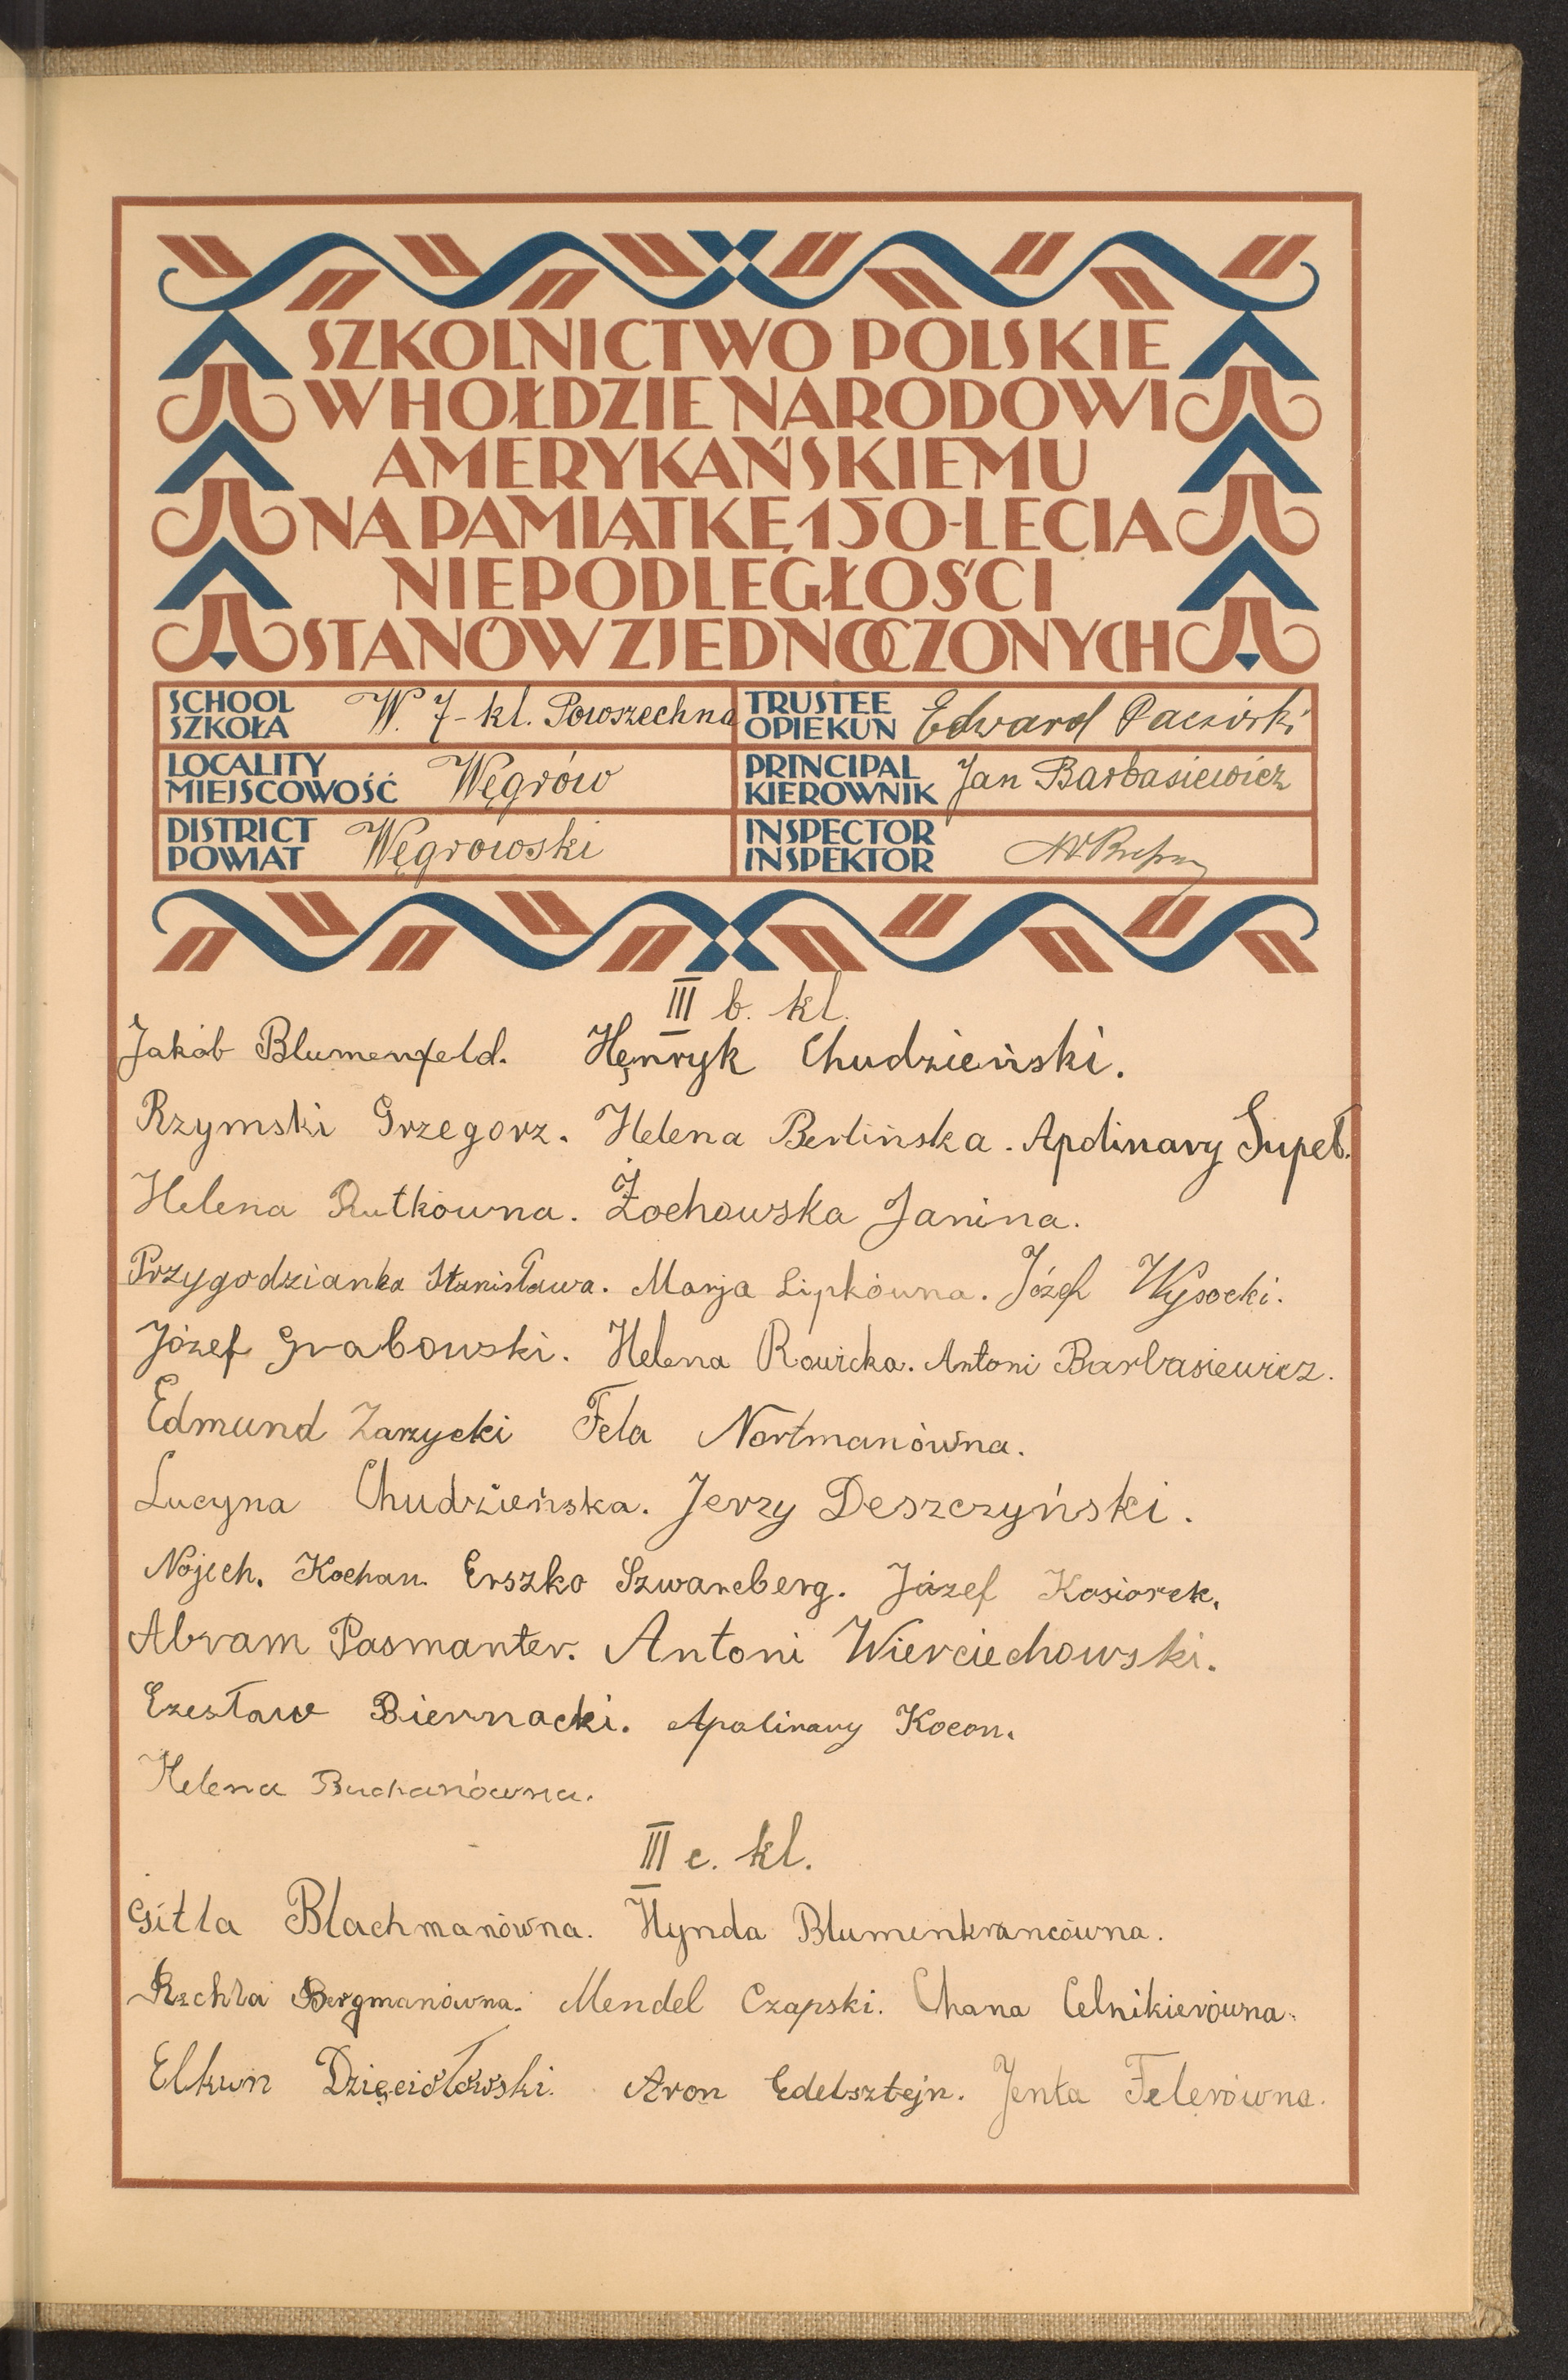 SZKOLNICTWO POLSKIE
W HOŁDZIE NARODOWI
AMERYKAŃSKIEMU
NA PAMIĄTKĘ 150-LECIA
NIEPODLEGŁOŚCI
STANÓW ZJEDNOCZONYCH
SCHOOL
SZKOŁA
W. 7-kl. Powszechna
TRUSTEE
OPIEKUN
Edward
LOCALITY
MIEJSCOWOŚĆ
Węgrów
PRINCIPAL
KIEROWNIK
Jan Barbasiewicz
DISTRICT
POWIAT
Węgrowski
INSPECTOR
INSPEKTOR
III b. kl.
Jakób Blumenfeld. Henryk Chudzieński.
Rzymski Grzegorz. Helena Berlińska. Apolinary Supeł.
Helena Rutkówna. Żochowska Janina.
Przygodzianka Stanisława. Marja Lipkówna. Józef Wysocki.
Józef Grabowski. Helena Rowicka. Antoni Barbasiewicz.
Edmund Zarzycki Fela Nortmanówna.
Lucyna Chudzieńska. Jerzy Deszczyński.
Nojech. Kochan. Erszko Szwarcberg. Józef Kosiorek.
Abram Pasmanter. Antoni Wierciechowski.
Czesław Biernacki. Apolinary Kocon.
Helena Buchanówna.
III c. kl.
Gitla Blachmanówna. Hynda Blumenkrancówna.
Rechla Bergmanówna. Mendel Czapski. Chana Celnikierówna.
Elkun Dzięciołowski. Aron Edelsztejn. Jenta Felerówna.